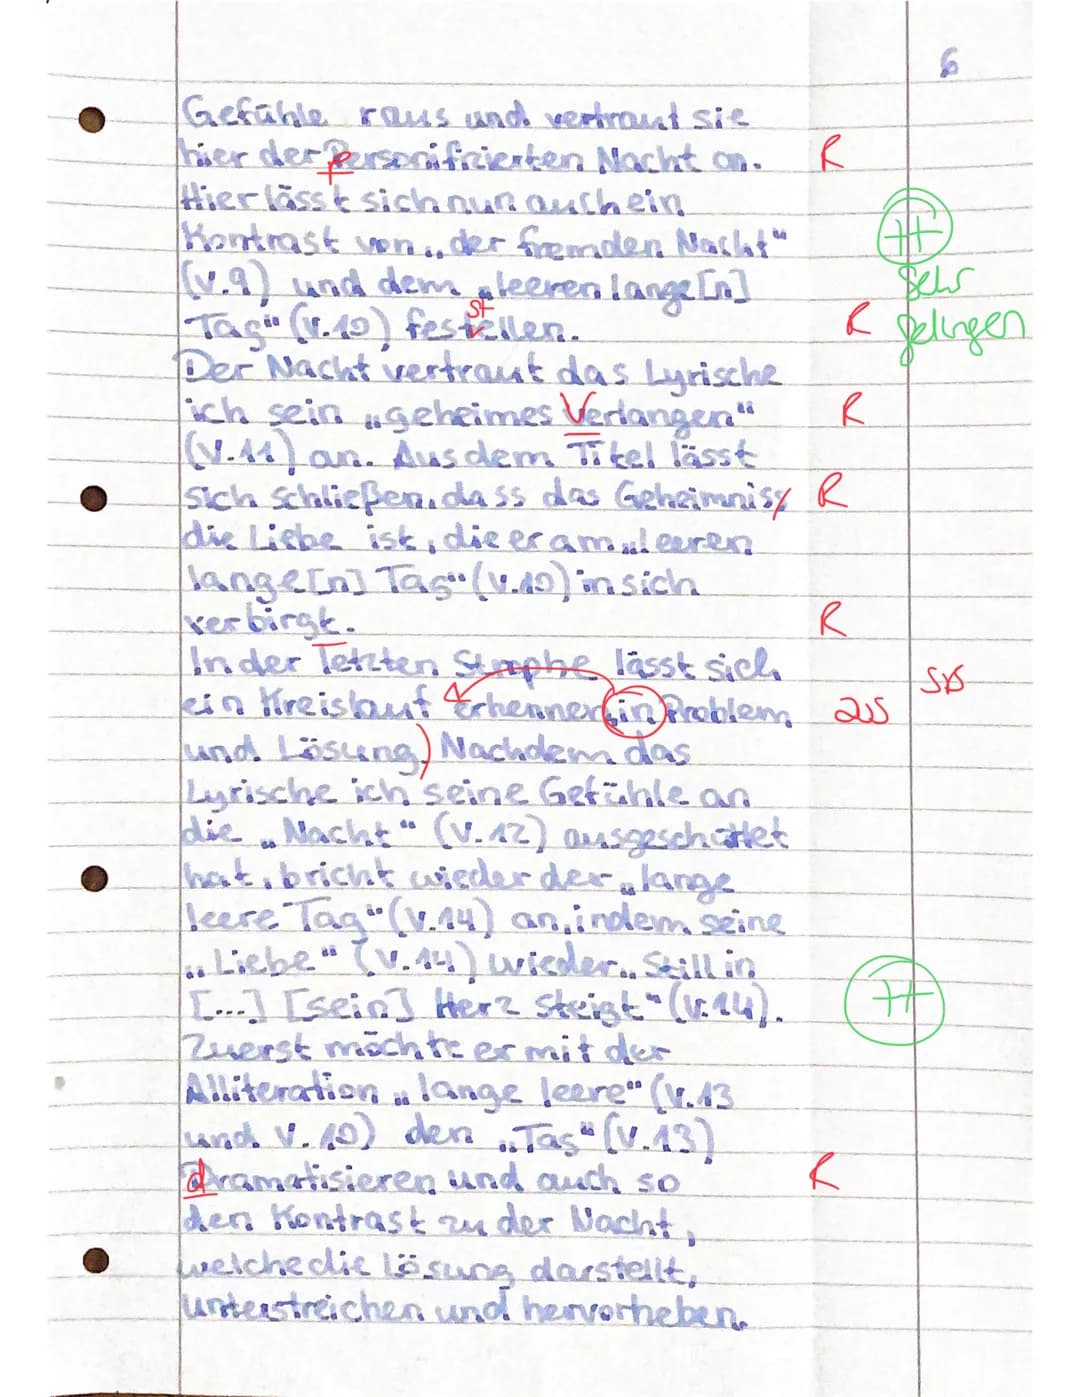 6
Gefühle raus und vertraut sie
hier der personifizierten Nacht an. R
Hier lässt sich nun auch ein
Kontrast von „der fremden Nacht“ ++
(V.9) und dem „leeren lange[n] sehr
st
Tag“ (V.10) festellen. R gelungen
Der Nacht vertraut das Lyrische
ich sein „geheimes Verlangen“ R
(V.11) an. Aus dem Titel lässt
sich schließen, dass das Geheimniss R
die Liebe ist, die er am „leeren
lange[n] Tag“ (V.10) in sich
verbirgt. R
In der letzten Strophe lässt sich
ein Kreislauf erkennen in Problem
und Lösung. Nachdem das
Lyrische ich seine Gefühle an
die „Nacht“ (V.12) ausgeschüttet
hat, bricht wieder der „lange
leere Tag“ (V.14) an, indem seine
„Liebe“ (V.14) wieder „still in
[...] [sein] Herz steigt“ (V.14). ++
Zuerst möchte er mit der
Alliteration „lange leere“ (V.13
und V.10) den „Tag“ (V.13)
dramatisieren und auch so R
den Kontrast zu der Nacht,
welche die Lösung darstellt,
unterstreichen und hervorheben.